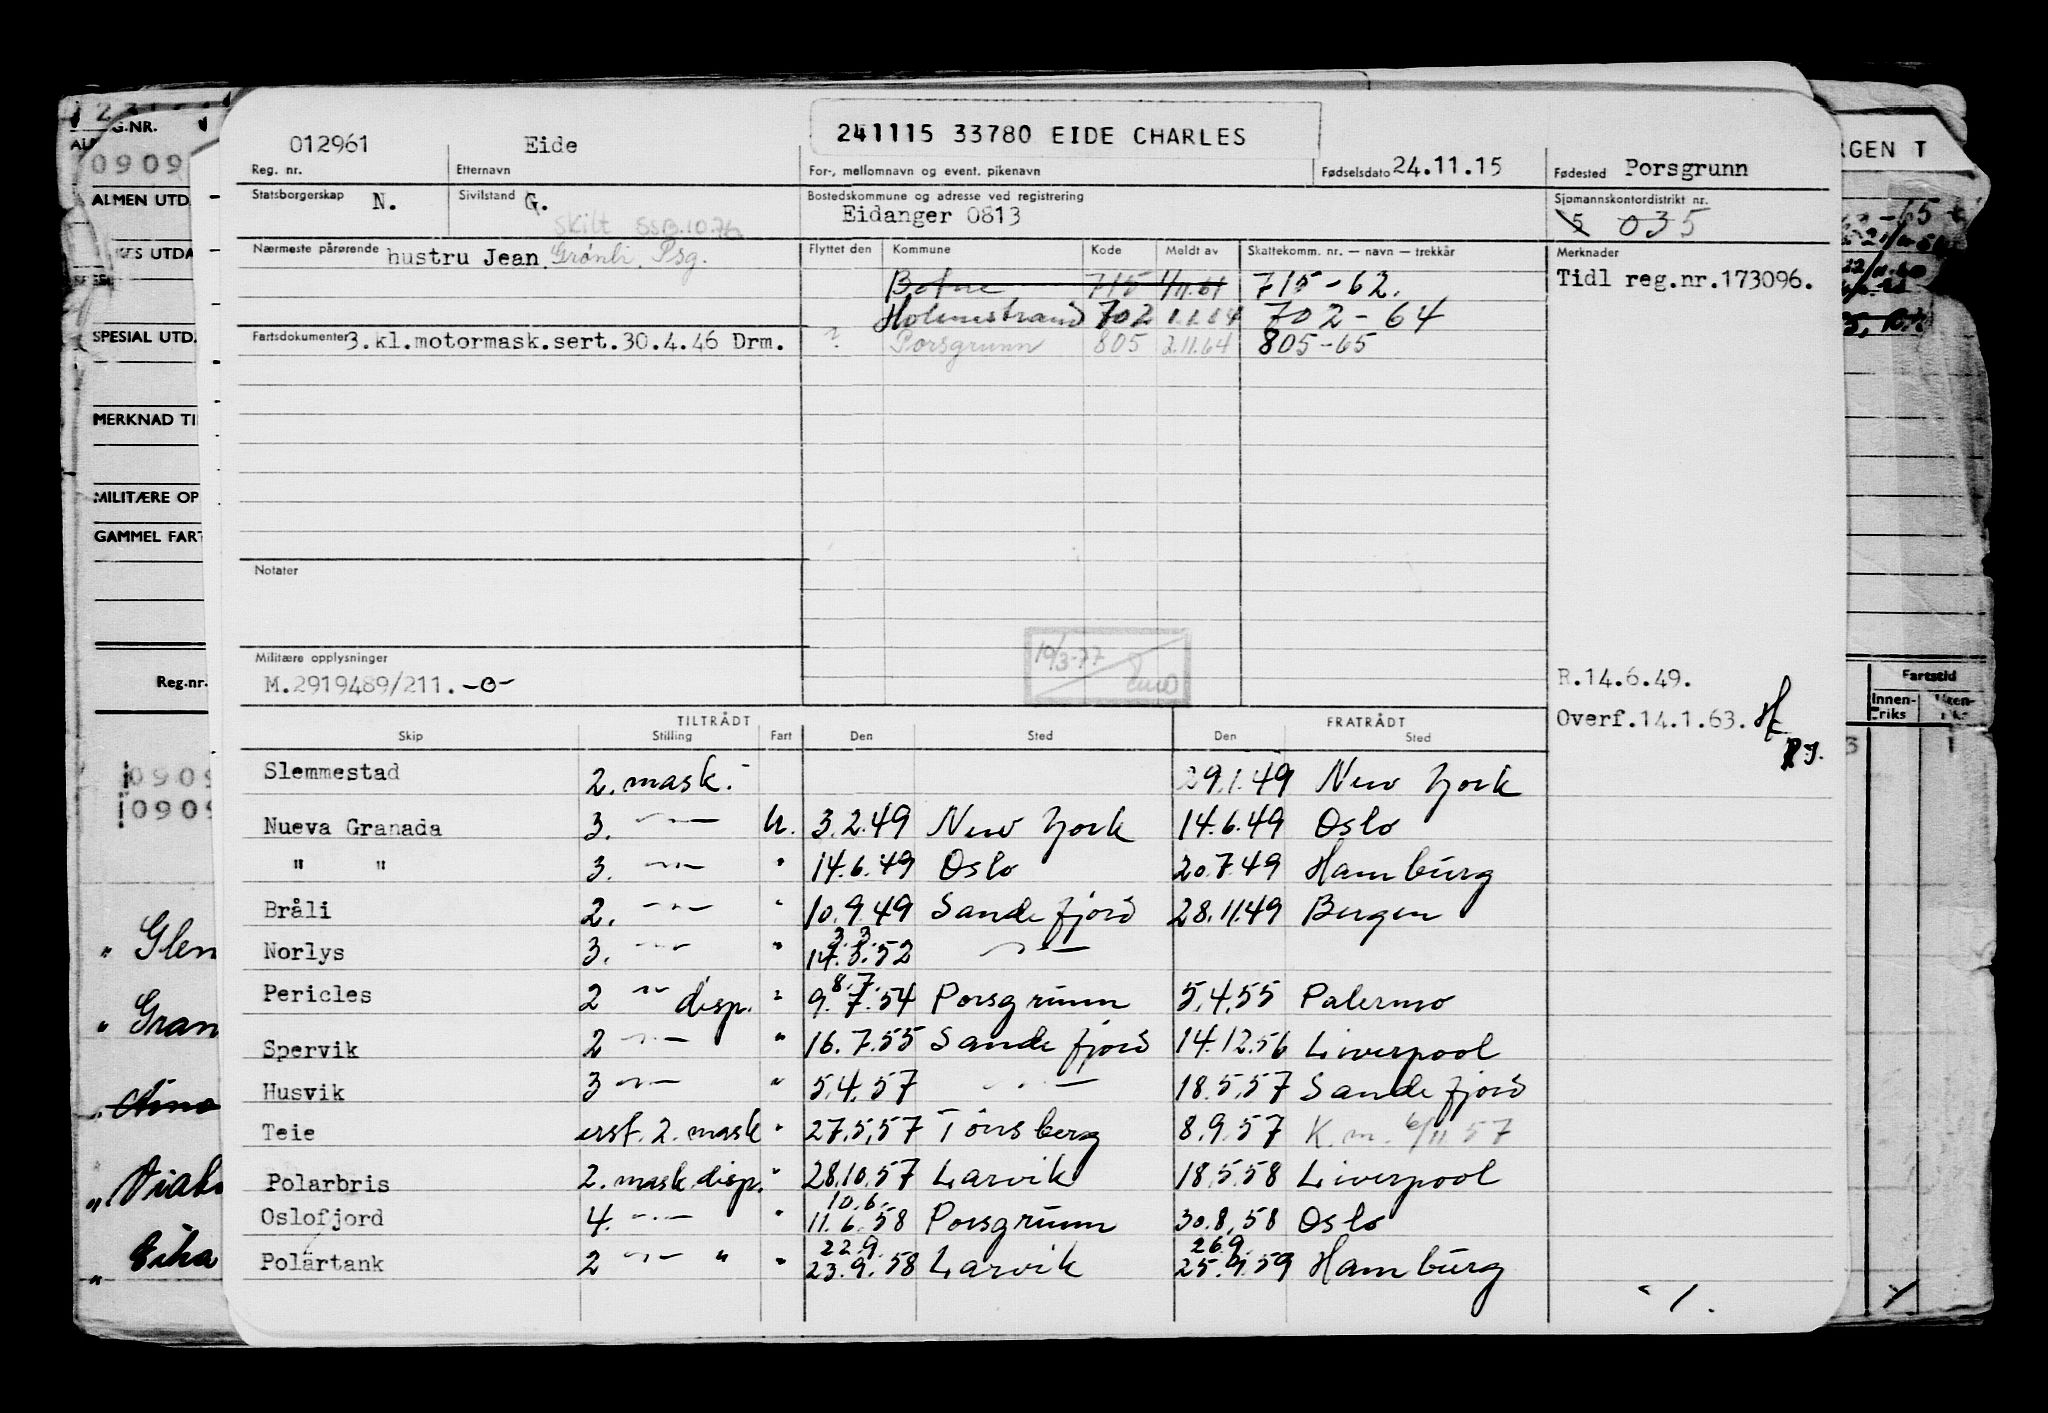 012961 Eide 241115 33780 EIDE CHARLES 24.11.15 Porsgrunn
Reg. nr. Etternavn For-, mellomnavn og event. pikenavn Fødselsdato Fødested
Statsborgerskap N. Sivilstand G. Bostedskommune og adresse ved registrering Sjømannskontordistrikt nr.
Skilt Eidanger 0813 5 035
Nærmeste pårørende hustru Jean Grønli, Psg. Flyttet den Kommune Kode Meldt av Skattekomm. nr. — navn — trekkår Merknader
Botne 715 1/11.61 715-62. Tidl reg.nr.173096.
Holmestrand 702 1.1.64 702-64
Fartsdokumenter 3.kl.motormask.sert.30.4.46 Drm. ? Porsgrunn 805 2.11.64 805-65
Notater
Militære opplysninger 19/3-77
M.2919489/211. -0- R.14.6.49.
Overf.14.1.63.
TILTRÅDT FRATRÅDT
Skip Stilling Fart Den Sted Den Sted
Slemmestad 2. mask. 29.1.49 New York
Nueva Granada 3. -"- U. 3.2.49 New York 14.6.49 Oslo
" " 3. -"- " 14.6.49 Oslo 20.7.49 Hamburg
Bråli 2. -"- " 10.9.49 Sandefjord 28.11.49 Bergen
3.3.
Norlys 3. -"- " 14.3.52 -"-
8.7.
Pericles 2 -"- disp. " 9.7.54 Porsgrunn 5.4.55 Palermo
Spervik 2 -"- " 16.7.55 Sandefjord 14.12.56 Liverpool
Husvik 3 -"- " 5.4.57 -"- 18.5.57 Sandefjord
Teie erst. 2. mask " 27.5.57 Tønsberg 8.9.57 K.m. 6/11 57
Polarbris 2. mask.disp. " 28.10.57 Larvik 18.5.58 Liverpool
10.6.
Oslofjord 4. -"- " 11.6.58 Porsgrunn 30.8.58 Oslo
22.9. 26.9.
Polartank 2 -"- " " 23.9.58 Larvik 25.9.59 Hamburg
G.NR.
0909
ALMEN UTD.
SPESIAL UTD.
MERKNAD TI
MILITÆRE OP
GAMMEL FART
Reg.nr.
0909
0909
" Glen
" Gran
RGEN T
Fartstid
Innen-
riks